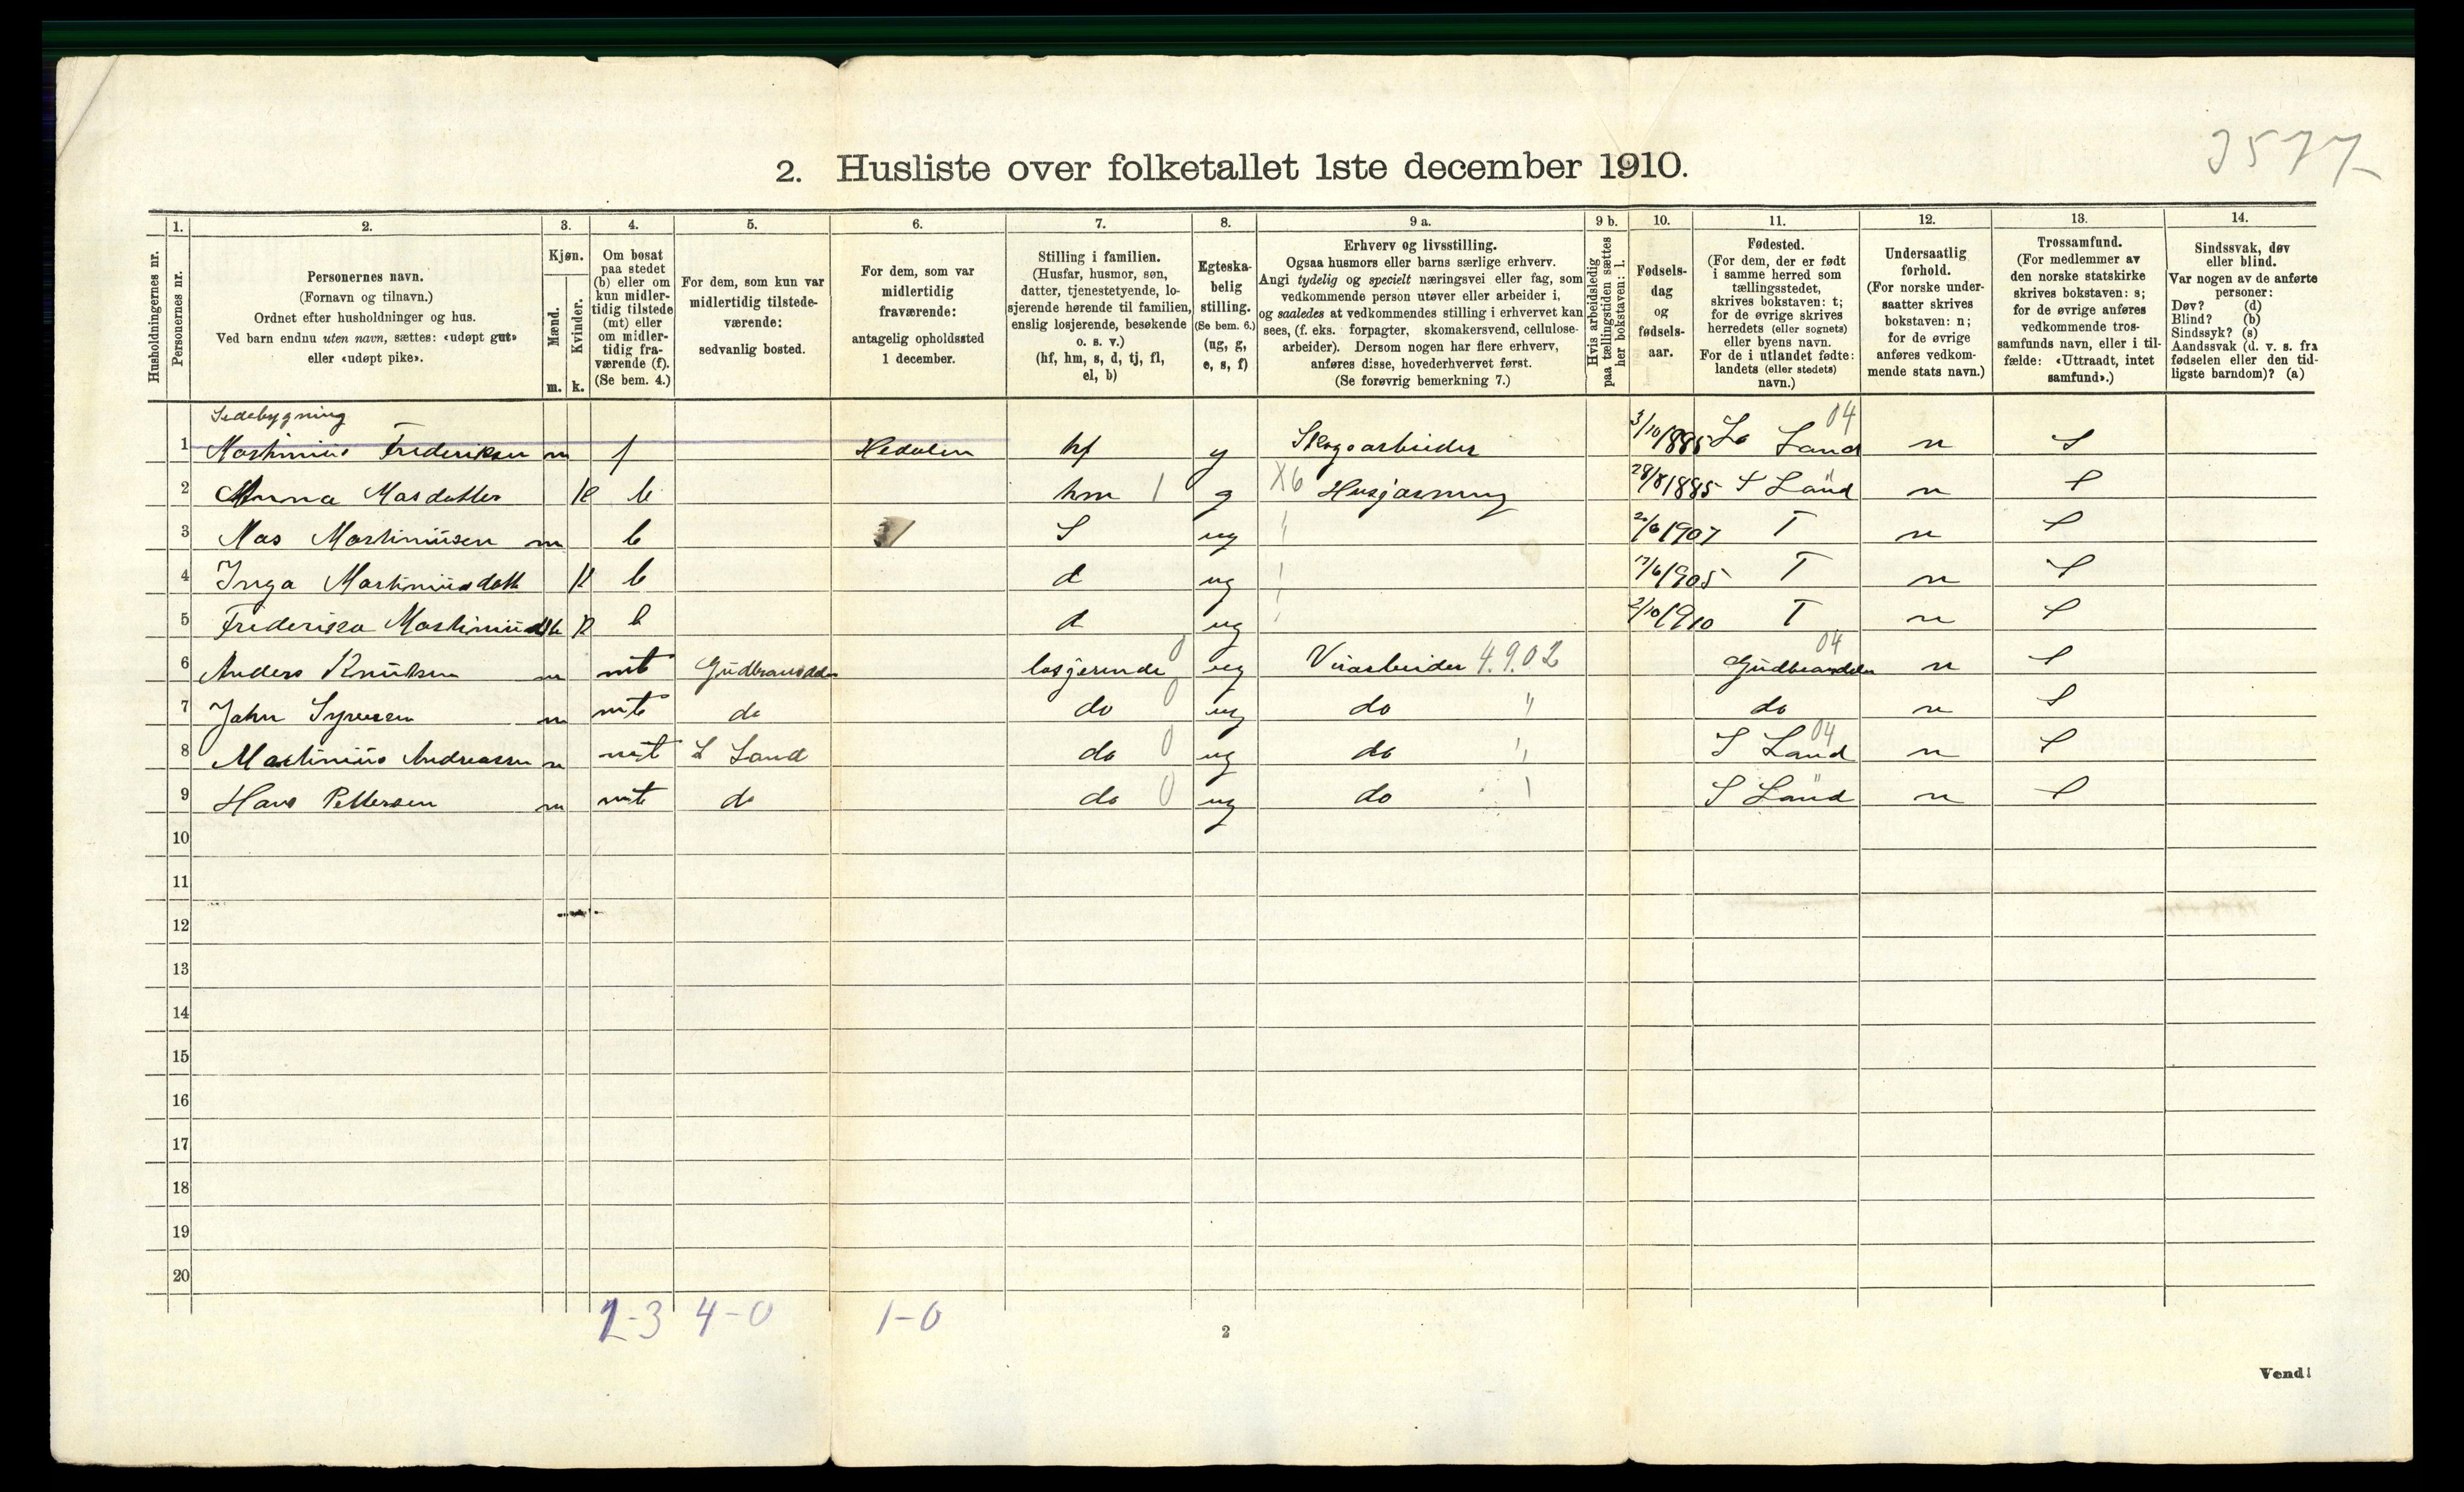 3577
2. Husliste over folketallet 1ste december 1910.
Husholdningernes nr.
1.
Personernes nr.
2.
Personernes navn.
(Fornavn og tilnavn.)
Ordnet efter husholdninger og hus.
Ved barn endnu uten navn, sættes: «udøpt gut»
eller «udøpt pike».
3.
Kjøn.
Mænd.
Kvinder.
m. k.
4.
Om bosat
paa stedet
(b) eller om
kun midler-
tidig tilstede
(mt) eller
om midler-
tidig fra-
værende (f).
(Se bem. 4.)
5.
For dem, som kun var
midlertidig tilstede-
værende:
sedvanlig bosted.
6.
For dem, som var
midlertidig
fraværende:
antagelig opholdssted
1 december.
7.
Stilling i familien.
(Husfar, husmor, søn,
datter, tjenestetyende, lo-
sjerende hørende til familien,
enslig losjerende, besøkende
o. s. v.)
(hf, hm, s, d, tj, fl,
el, b)
8.
Egteska-
belig
stilling.
(Se bem. 6.)
(ug, g,
e, s, f)
9 a.
Erhverv og livsstilling.
Ogsaa husmors eller barns særlige erhverv.
Angi tydelig og specielt næringsvei eller fag, som
vedkommende person utøver eller arbeider i,
og saaledes at vedkommendes stilling i erhvervet kan
sees, (f. eks. forpagter, skomakersvend, cellulose-
arbeider). Dersom nogen har flere erhverv,
anføres disse, hovederhvervet først.
(Se forøvrig bemerkning 7.)
9 b.
Hvis arbeidsledig
paa tællingstiden sættes
her bokstaven: l.
10.
Fødsels-
dag
og
fødsels-
aar.
11.
Fødested.
(For dem, der er født
i samme herred som
tællingsstedet,
skrives bokstaven: t;
for de øvrige skrives
herredets (eller sognets)
eller byens navn.
For de i utlandet fødte:
landets (eller stedets)
navn.)
12.
Undersaatlig
forhold.
(For norske under-
saatter skrives
bokstaven: n;
for de øvrige
anføres vedkom-
mende stats navn.)
13.
Trossamfund.
(For medlemmer av
den norske statskirke
skrives bokstaven: s;
for de øvrige anføres
vedkommende tros-
samfunds navn, eller i til-
fælde: «Uttraadt, intet
samfund».)
14.
Sindssvak, døv
eller blind.
Var nogen av de anførte
personer:
Døv? (d)
Blind? (b)
Sindssyk? (s)
Aandssvak (d. v. s. fra
fødselen eller den tid-
ligste barndom)? (a)
Sidebygning
1 Martinius Frederiksen m f Hedalen hf g Skogsarbeider 3/10 1885 Land 04 n S
2 Anna Masdatter k b hm 1 g X6 Husgjærning 28/8 1885 S Land " n S
3 Mas Martiniusen m b S ug " 1907 T n S
4 Inga Martiniusdatt k b d ug " 1905 T n S
5 Frederikka k b d ug " 2/10 1910 T n S
6 Anders Knutsen m mt Gudbransdalen losjerende 0 ug 4.9.02 Gudbrandsdalen 04 n S
7 John m mt do do 0 ug do " do n S
8 Martinius Andreassen m mt S Land do 0 ug do " S Land 04 n S
9 Hans Pettersen m mt do do 0 ug do " S Land " n S
10
11
12
13
14
15
16
17
18
19
20
1-3 4-0 1-0
2
Vend!